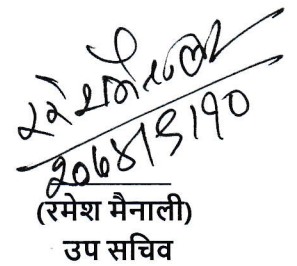 २०७४।९।१०
(रमेश मैनाली)
उप सचिव